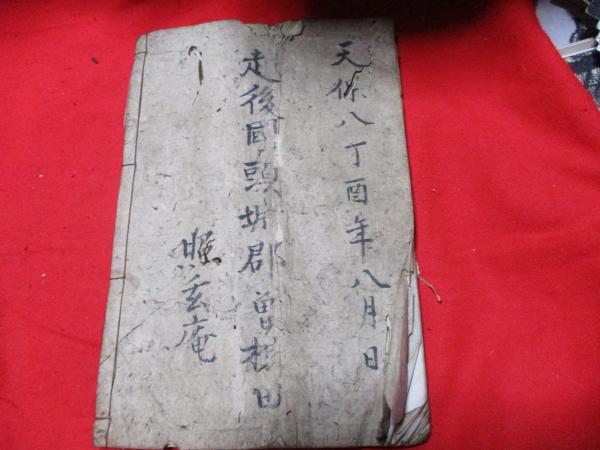 天保八丁酉年八月日
走後國頭城郡曽根田
照玄庵